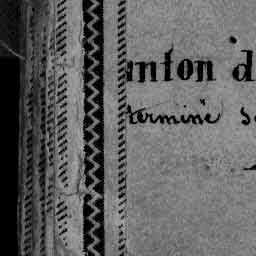 anton d
terminé s